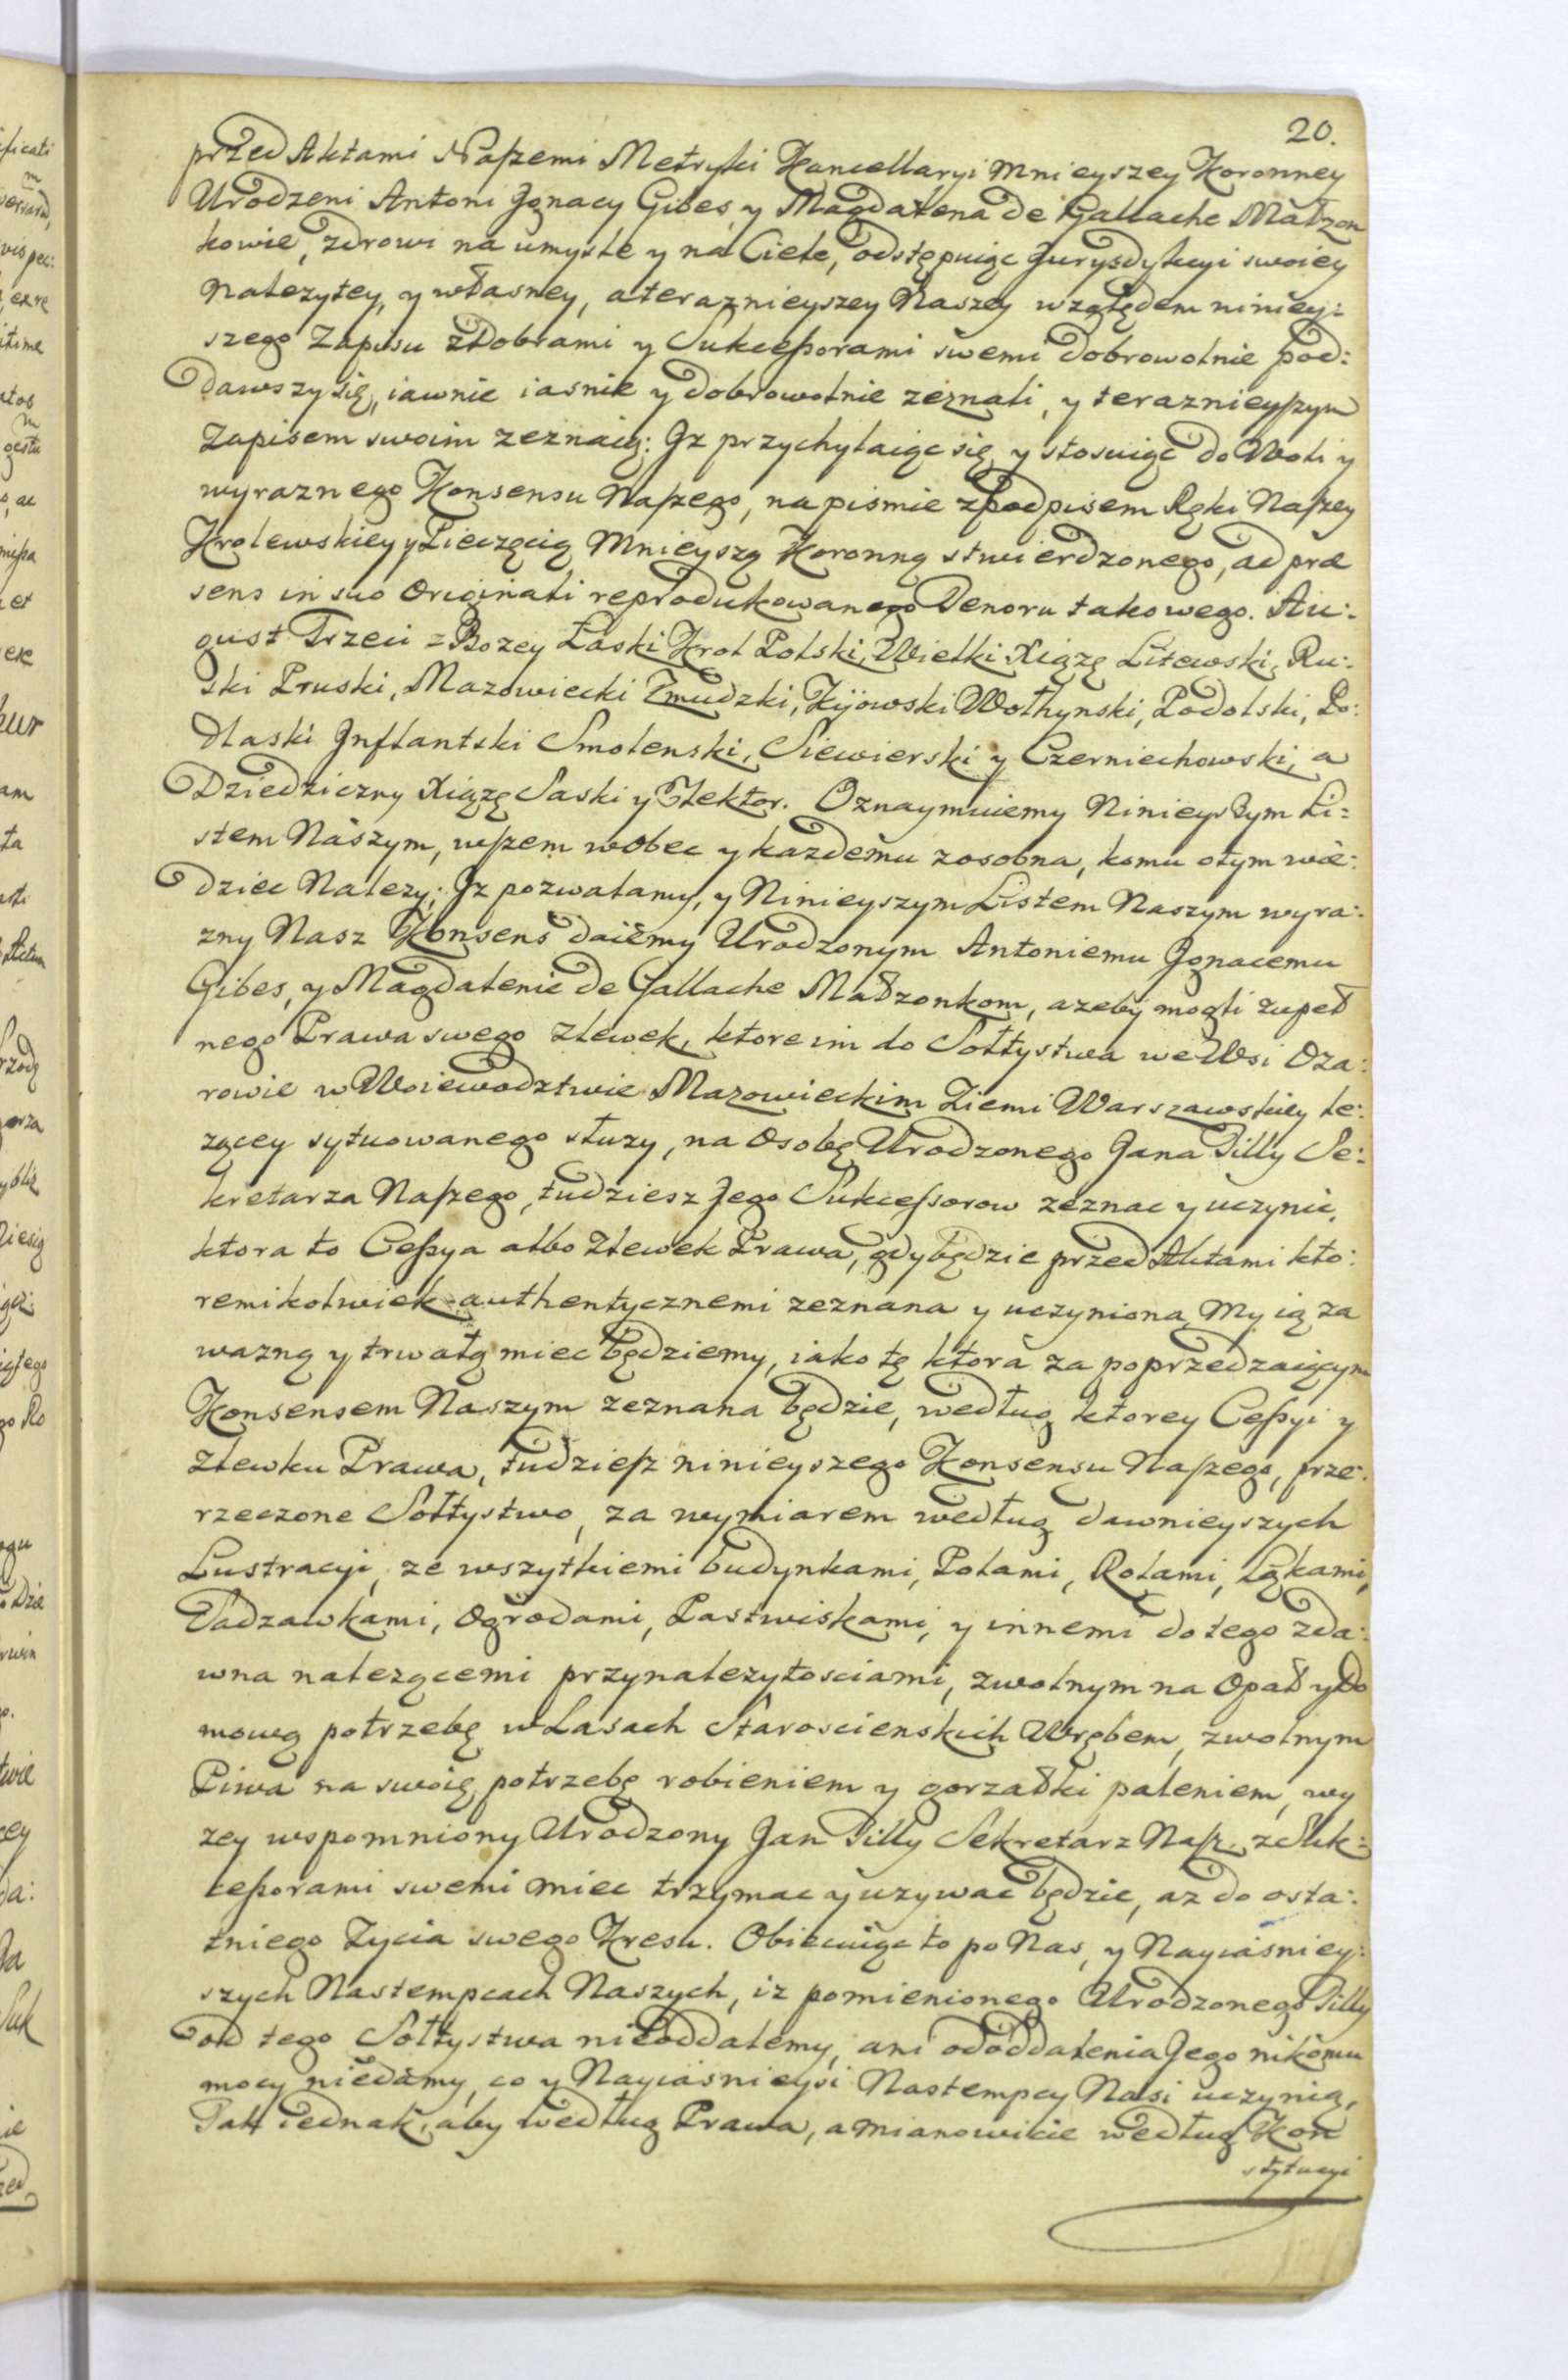 20.
przed Aktami Naszemi Metryki Kancellaryi Mnieyszey Koronney
Urodzeni Antoni Jgnacy Gibes, y Magdalena de Gallache Małzon
kowie, zdrowi na umysle y na Ciele, odstępuiąc Jurysdykcyi swoiey
Nalezytey, y własney, a teraznieyszey Naszey względem ninieyi:
szego Zapisu z Dobrami y Sukcessorami swemi dobrowolnie pod:
dawszy się, iawnie iasnie y dobrowolnie zeznali, y teraznieyszym
Zapisem swoim zeznaią: Jz przychylaiąc się y stosuiąc do Woli y
wyraznego Konsensu Naszego, na pismie z podpisem Ręki Naszey
Krolewskiey y Pieczęcią Mnieyszą Koronną stwierdzonego, ad præ
sens in suo Originali reprodukowanego Tenoru takowego. Au:
gust Trzeci z Bozey Łaski Krol Polski, Wielki Xiązę Litewski, Ru:
ski Pruski, Mazowiecki Zmudzki, Kijowski Wołhynski, Podolski, Po:
dlaski Jnflantski Smolenski, Siewierski y Czerniechowski, a
Dziedziczny Xiązę Saski y Elektor. Oznaymuiemy Ninieyszym Li:
stem Naszym, wszem wobec y kazdemu zosobna, komu o tym wie:
dziec Nalezy; Jz pozwalamy, y Ninieyszym Listem Naszym wyra:
zny Nasz Konsens daiemy Urodzonym Antoniemu Jgnacemu
Gibes, y Magdalenie de Gallache Małzonkom, azeby mogli zupeł
nego Prawa swego zlewek, ktore im do Sołtystwa we Wsi Oza:
rowie w Woiewodztwie Mazowieckim Ziemi Warszawskiey le:
zącey sytuowanego słuzy, na Osobę Urodzonego Jana Tilly Se:
kretarza Naszego, tudziesz Jego Sukcessorow zeznac y uczynic,
ktora to Cessya albo Zlewek Prawa, gdy będzie przed Aktami kto:
remikolwiek authentycznemi zeznana y uczyniona, My ią za
wazną y trwałą miec będziemy, iako tę ktora za poprzedzaiącym
Konsensem Naszym zeznana będzie, według ktorey Cessyi y
Zlewku Prawa, tudziesz ninieyszego Konsensu Naszego, prze:
rzeczone Sołtystwo, za wymiarem według dawnieyszych
Lustracyi, ze wszytkiemi budynkami, Polami, Rolami, Łąkami,
Sadzawkami, Ogrodami, Pastwiskami, y innemi do tego zda:
wna nalezącemi przynalezytosciami, z wolnym na Opał y Do
mową potrzebę w Lasach Staroscienskich Wrębem, z wolnym
Piwa na swoię potrzebę robieniem y gorzałki paleniem, wy
zey wspomniony Urodzony Jan Tilly Sekretarz Nasz, z Suk:
cessorami swemi miec trzymac y uzywac będzie, az do osta:
tniego Zycia swego Kresu. Obiecuiąc to po Nas, y Nayiasniey:
szych Nastempcach Naszych, iz pomienionego Urodzonego Tilly
od tego Sołtystwa nieoddalemy, ani do oddalenia Jego nikomu
mocy niedamy, co y Nayiasnieysi Nastempcy Nasi uczynią,
Tak iednak, aby według Prawa, a mianowicie według Kon
stytucyi